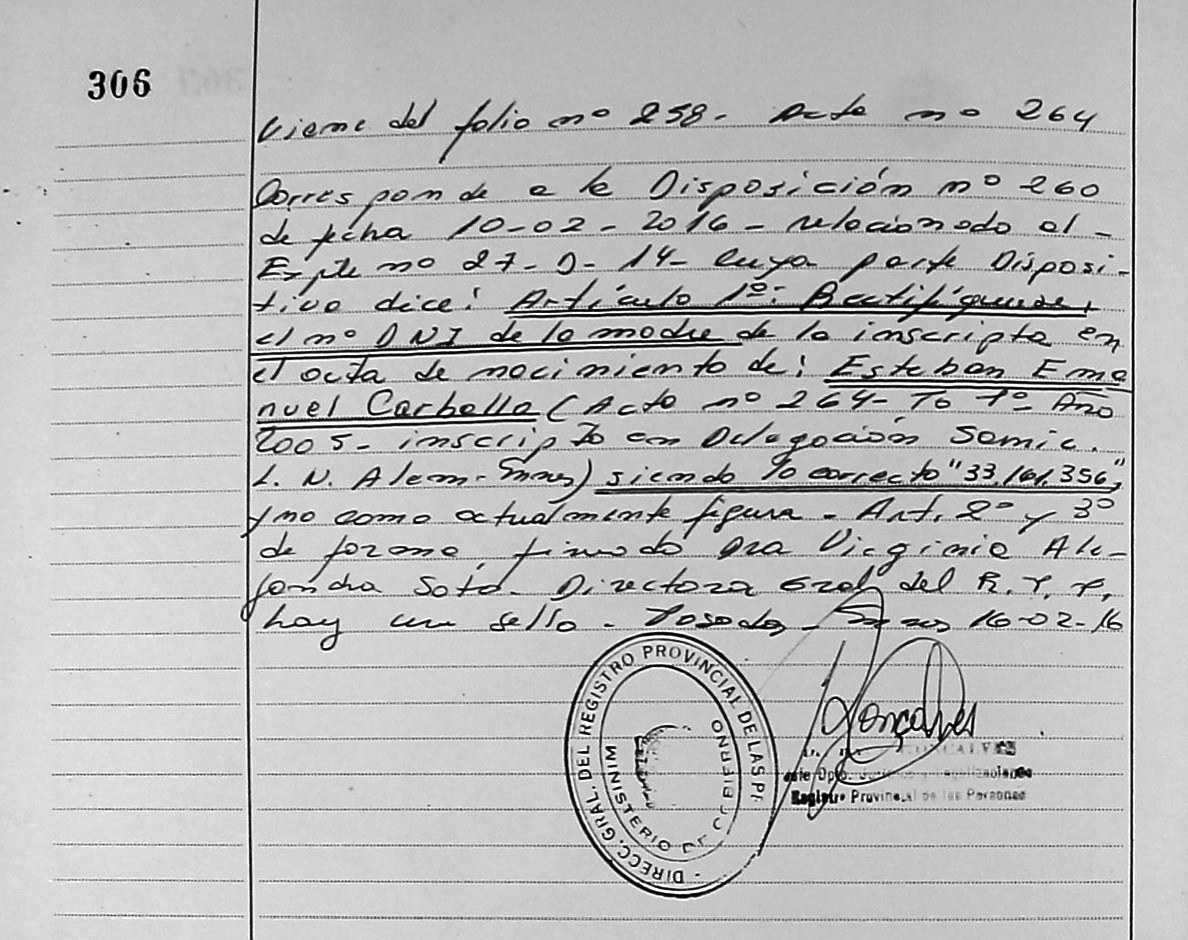 306
Viene del folio nº 258- Acta nº 264
Corresponde a la Disposición nº 260
de fecha 10-02-2016- relacionado al-
Expte nº 27-D-14- cuya parte Disposi-
tiva dice: Artículo 1º: Rectifíquese,
el nº DNI de la madre de la inscripta en
el acta de nacimiento de: Esteban Ema
nuel Carballo (Acta nº 264- Tº 1º- Año
2005- inscripto en Delegación
L. N. Alem- Mnes) siendo lo correcto "33.161.356",
y no como actualmente figura- Art. 2º y 3º
de forma, firmado Dra Virginia Ale-
jandra Soto. Directora Gral del R. P. P.
hay un sello- Posadas- Mnes 16-02-16
DIRECC. GRAL. DEL REGISTRO PROVINCIAL DE LAS P
MINISTERIO DE GOBIERNO
Gonçalves
GONCALVES
Dpto. Legalizaciones
Registro Provincial de las Personas